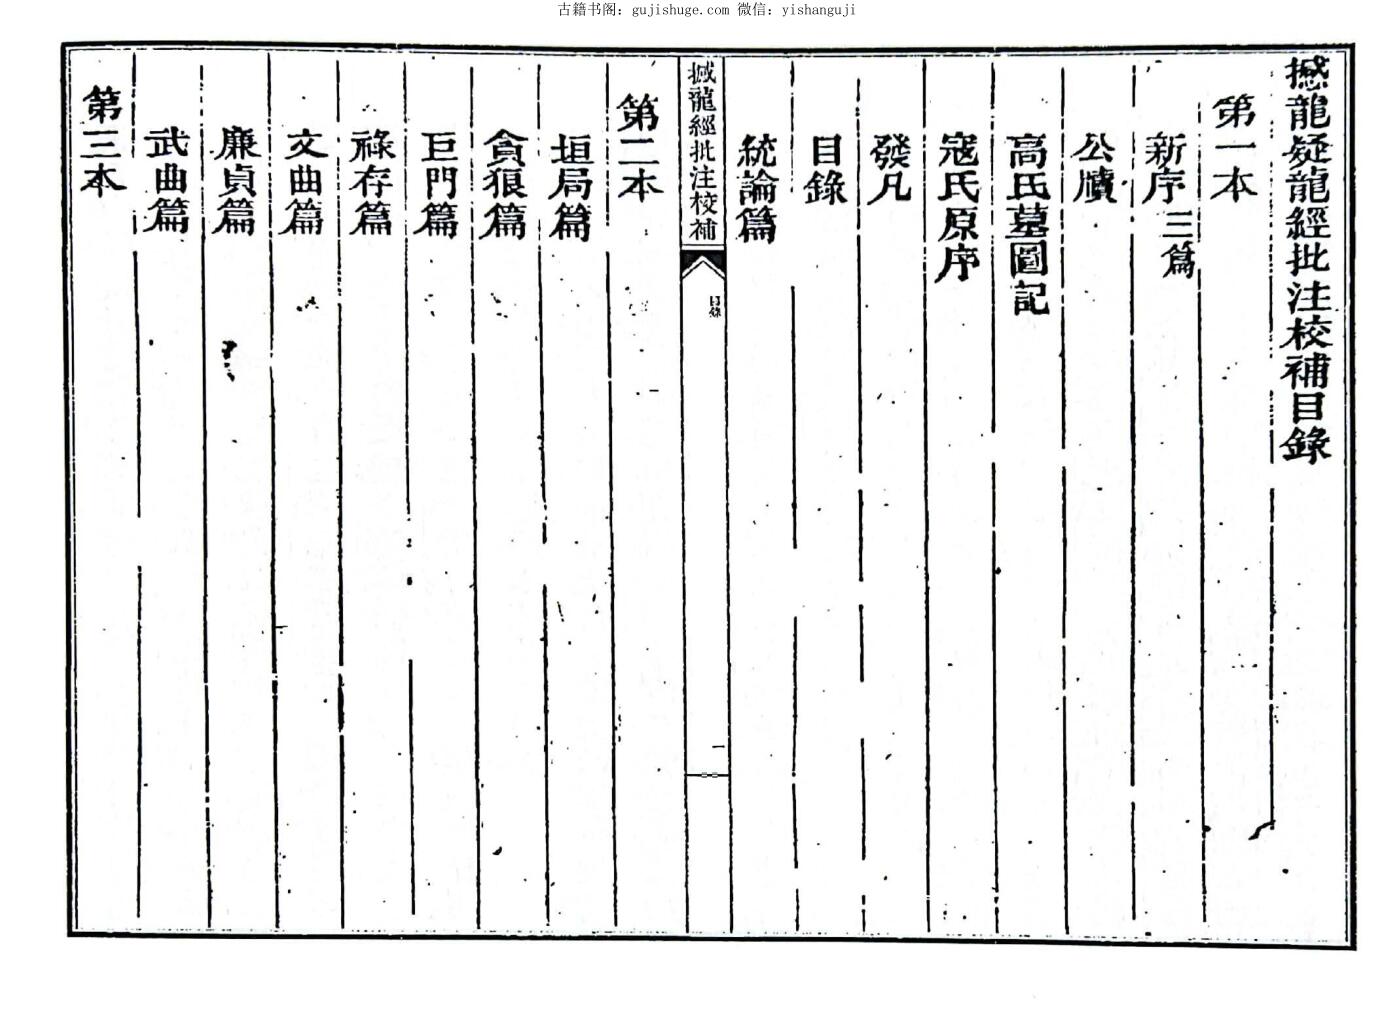 古籍书阁：gujishuge.com 微信：yishanguji
撼龍疑龍經批注校補目錄
第一本
新序三篇
公牘
高氏墓圖記
寇氏原序
發凡
目錄
統論篇
撼龍經批注校補 目錄 一
第二本
垣局篇
貪狼篇
巨門篇
祿存篇
文曲篇
廉貞篇
武曲篇
第三本